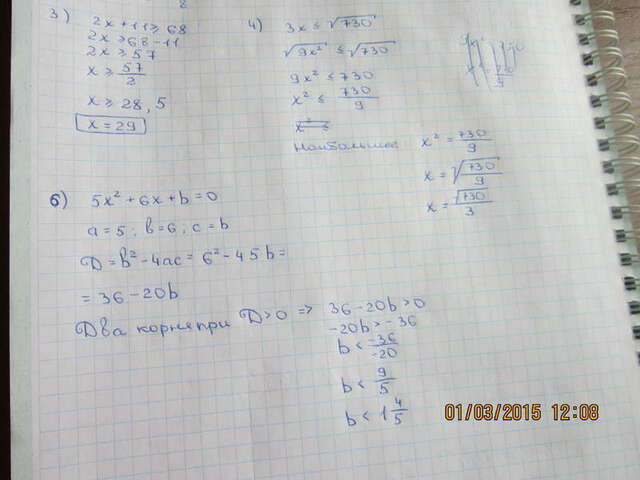 8
3) 2x + 11 ≥ 68
2x ≥ 68 - 11
2x ≥ 57
x ≥ 57/2
x ≥ 28,5
x = 29
4) 3x ≤ √730
√9x² ≤ √730
9x² ≤ 730
x² ≤ 730/9
x² ≤
Наибольшее:
x² = 730/9
x = √730/9
x = √730/3
6) 5x² + 6x + b = 0
a = 5; b = 6; c = b
D = b² - 4ac = 6² - 45b =
= 36 - 20b
Два корня при D > 0 => 36 - 20b > 0
-20b > -36
b < -36/-20
b < 9/5
b < 1 4/5
01/03/2015 12:08